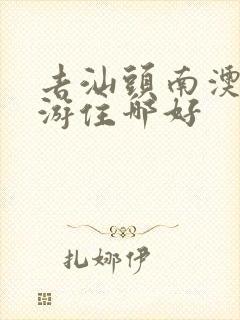 去汕頭南澳
游住哪好
扎娜伊